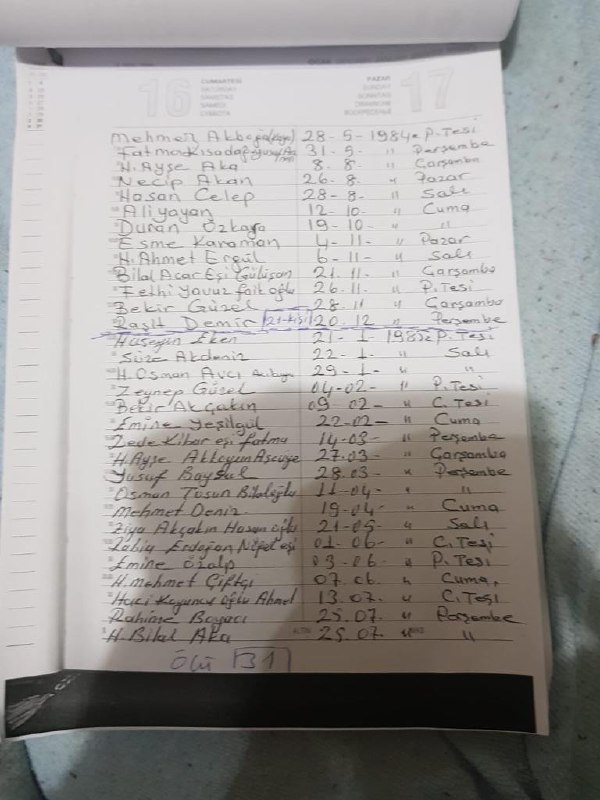 16 CUMARTESİ PAZAR 17
Mehmet Akboğa 28-5-1984 P.Tesi
Fatma Kısadag 31-5- " Perşembe
H. Ayşe Aka 8.8- " Çarşamba
Necip Akan 26-8- " Pazar
Hasan Celep 28-8- " Salı
Ali yayan 12-10- " Cuma
Duran Özkaya 19-10- " "
Esme Karaman 4-11- " Pazar
H. Ahmet Ergül 6-11- " Salı
Bilal Acar Eşi Gülüşan 21.11- " Çarşamba
Fethi Yavuz 26.11- " P.Tesi
Bekir Güzel 28.11 " Çarşamba
Raşit Demir 21-kişi 20.12 " Perşembe
Hüseyin Eken 21-1-1985 P.Tesi
Süze Akdeniz 22-1- " Salı
H. Osman Avcı 29-1- " "
Zeynep Güzel 04-02- " P.Tesi
Bekir Akçakın 09-02- " C.Tesi
Emine Yeşilgül 22-02- " Cuma
Zede Kibar eşi fatma 14-03- " Perşembe
H. Ayşe 27.03- " Çarşamba
Yusuf Baysal 28.03- " Perşembe
Osman Tosun 11-04- " "
Mehmet Deniz 19-04- " Cuma
Ziya Akçakın Hasan oğlu 21-05- " Salı
Rabia Erdoğan eşi 01-06- " C.Tesi
Emine Özalp 03-06- " P.Tesi
H. mehmet Çiftçi 07.06. " Cuma,
Hacı Koyuncu oğlu Ahmet 13.07. " C.Tesi
Rahime Boyacı 25.07. " Perşembe
H. Bilal Aka 25.07 " "
ÖLÜ 31